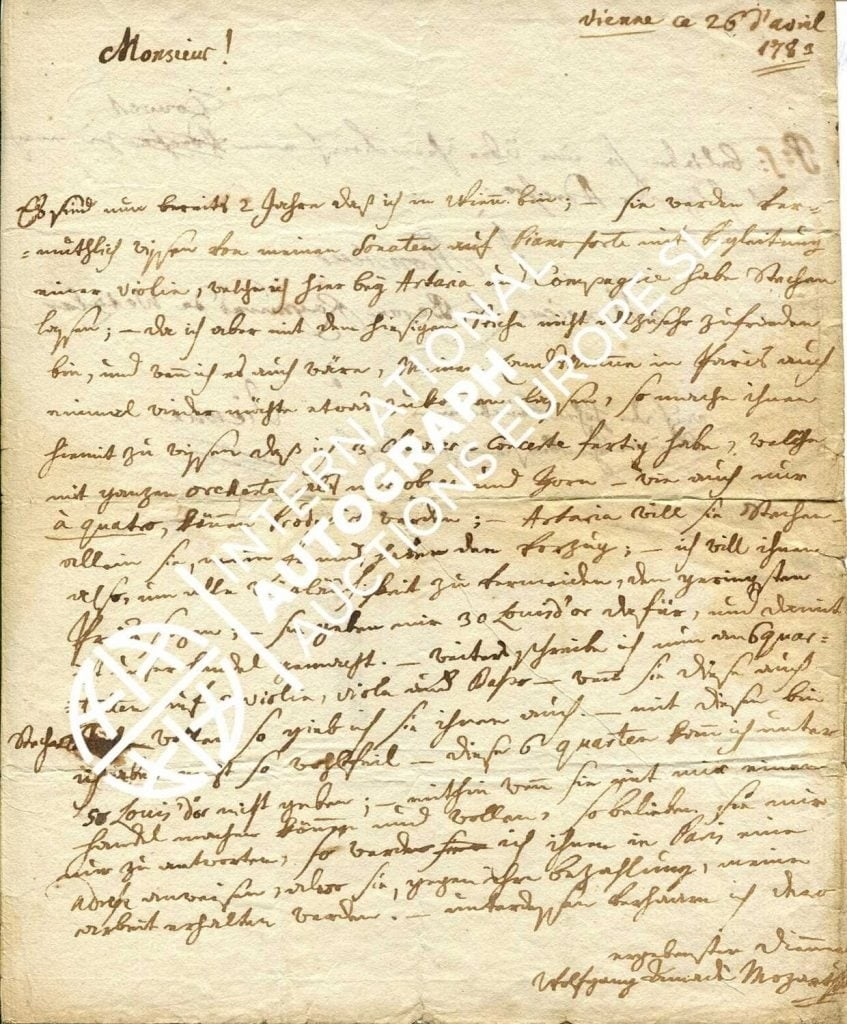 Vienne ce 26 d'avril
1783
Monsieur!
Es sind nun bereits 2 Jahre daß ich in Wienn bin; – sie werden ver=
=muthlich wissen von meinen Sonaten auf Piano forte mit begleitung
einer Violin, welche ich hier bey Artaria und Compagnie habe Stechen
lassen; – da ich aber mit dem hiesigen Stiche nicht allzusehr zufrieden
bin, und wenn ich es auch wäre, Meinen Landsmann in Paris auch
einmal wieder möchte etwas zukommen lassen, so mache ihnen
hiemit zu wissen daß ich 3 Clavier-Concerte fertig habe, welche
mit ganzen orchester, als mit oboen und Horn – wie auch nur
à quatro, können Producirt werden; – Artaria will sie Stechen.
allein sie, mein freund, haben den Vorzug; – ich will ihnen
also, um alle Weitläufigkeit zu vermeiden, den geringsten
Preis sagen; – sie geben mir 30 Louis d'or dafür, und damit
ist unser handel gemacht. – weiters schreibe ich nun an 6 quar=
=tetten auf 2 violin, viola und Basso – wenn sie diese auch
Stechen wollen so gieb ich sie ihnen auch. – mit diesen bin
ich aber nicht so wohlfeil – diese 6 quartetten kann ich unter
50 Louis d'or nicht geben; – mithin wenn sie mit mir einen
handel machen können und wollen, so belieben sie mir
nur zu antworten, so werde ich ihnen in Paris eine
adresse anweisen, alwo sie, gegen ihre bezahlung, meine
arbeit erhalten werden. – unterdessen verharre ich dero
ergebenster diener
Wolfgang Amadè Mozart
INTERNATIONAL
AUTOGRAPH
AUCTIONS EUROPE SL